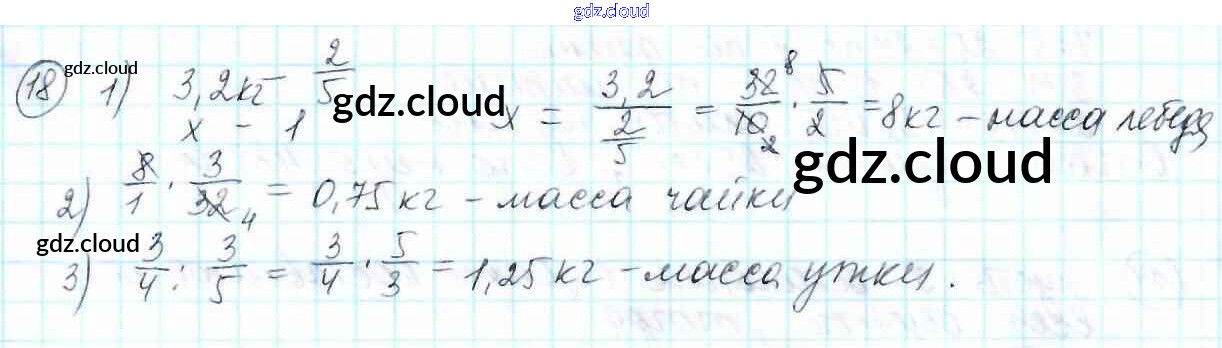 gdz.cloud
18 gdz.cloud 1) 3,2кг – 2/5
x – 1
gdz.cloud
x = 3,2 / (2/5) = 32/10 · 5/2 = 8кг – масса лебедя
8 2
gdz.cloud
2) 8/1 · 3/32 = 0,75кг – масса чайки
4
gdz.cloud
3) 3/4 : 3/5 = 3/4 · 5/3 = 1,25кг – масса утки.